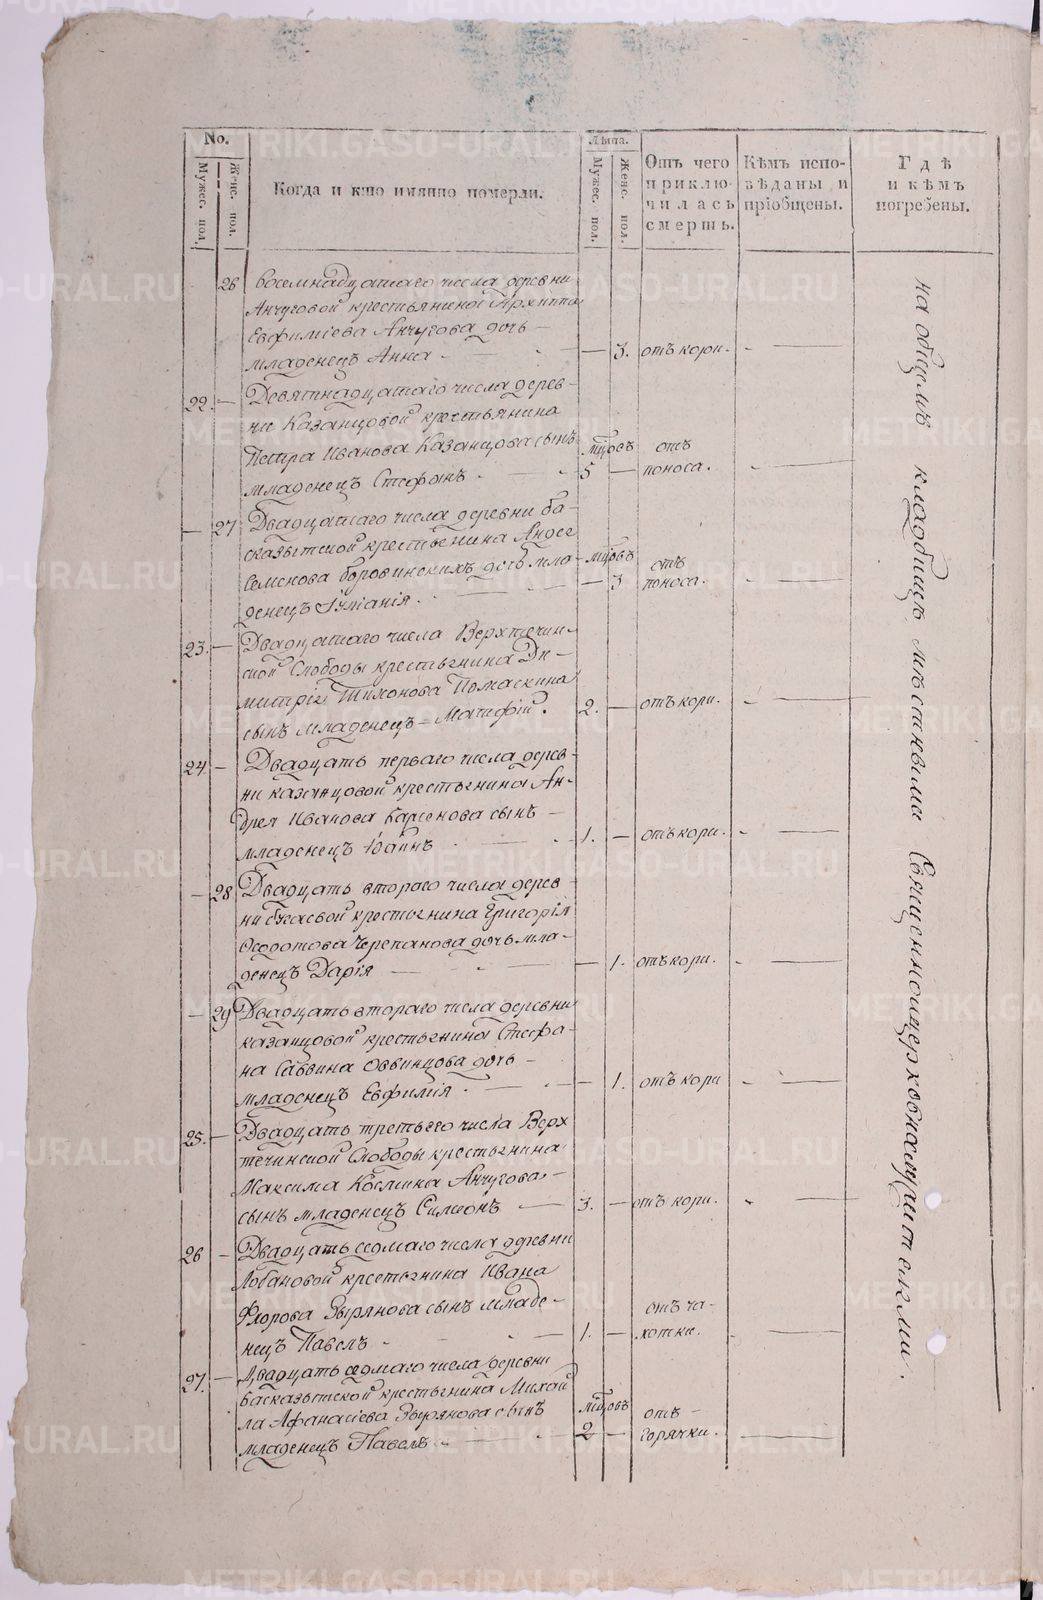 No.
Мужес. пол.
Женс. пол.
Когда и кто имянно померли.
Лѣта.
Мужес. пол.
Женс. пол.
Отъ чего
приклю-
чилась
смерть.
Кѣмъ испо-
вѣданы и
пріобщены.
Гдѣ
и кѣмъ
погребены.
26 восемнадцатаго числа деревни
Анчуговой крестьянина Архиппа
Евфиміева Анчугова дочь —
младенецъ Анна — 3. отъ кори.
22. — Девятнадцатаго числа дерев-
ни Казанцовой крестьянина
Петра Иванова Казанцова сынъ мцовъ отъ
младенецъ Стефанъ 5 — поноса.
— 27 Двадцатаго числа деревни ба-
сказытской крестьянина Андре
Семенова боровинскихъ дочь мла- мцовъ отъ
денецъ Іуліанія. — 3 поноса.
23. — Двадцатаго числа Верхтечин-
ской Слободы крестьянина Ди-
митрія Тихонова Помаскина
сынъ младенецъ 2. — отъ кори.
24 — Двадцать перваго числа дерев-
ни казанцовой крестьянина Ан-
дрея Иванова сынъ —
младенецъ Іоаннъ 1. — отъ кори.
— 28 Двадцать втораго числа дерев-
ни крестьянина Григорія
Ѳеодотова Черепанова дочь мла-
денецъ Дарія — 1. отъ кори.
— 29 Двадцать втораго числа деревни
казанцовой крестьянина Стефа-
на Саввина Оввинцова дочь —
младенецъ Евфимія — 1. отъ кори
25. — Двадцать третьего числа Верх
течинской Слободы крестьянина
Максима Космина Анчугова —
сынъ младенецъ Симеонъ 3. — отъ кори.
26 — Двадцать седмаго числа деревни
Лобановой крестьянина Ивана
Флорова Зырянова сынъ младе- отъ ча-
нецъ Павелъ 1. — хотки.
27. — Двадцать седмаго числа деревни
баказытской крестьянина Михай
ла Афанасіева Зырянова сынъ мцовъ отъ —
младенецъ Павелъ 2 — горячки.
на общемъ кладбищѣ мѣстными Священноцерковнослужителями.
METRIKI.GASO-URAL.RU